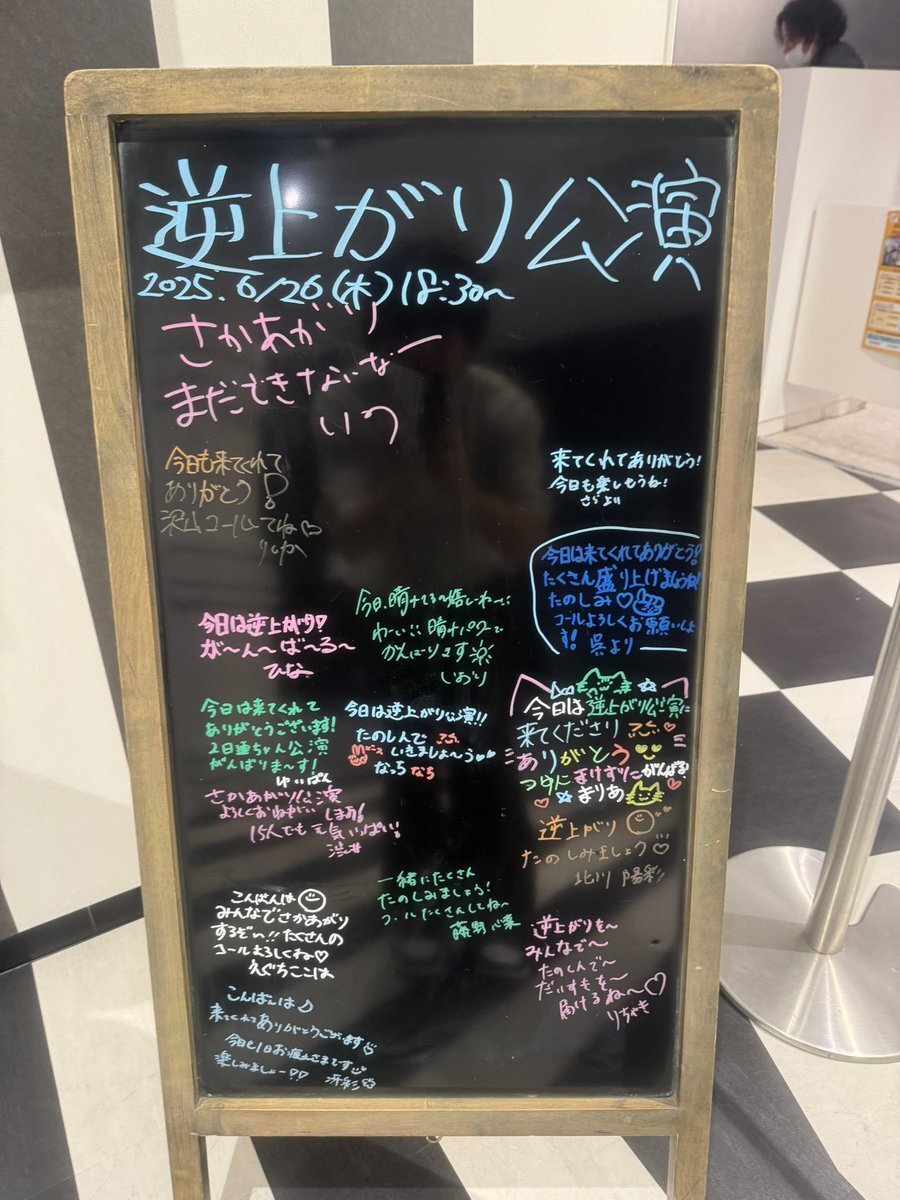 逆上がり公演
2025.6/26(木)18:30〜
さかあがり
まだできないなー
いつ
今日も来てくれて
ありがとう!
沢山コールしてね♡
りんか
来てくれてありがとう!
今日も楽しもうね!
さらより
今日は来てくれてありがとう!
たくさん盛り上げましょうね!
たのしみ♡
コールよろしくお願いしま
す! 呉より
今日、晴れてるの嬉しいわー!!
わーい!! 晴れパワーで
がんばります
しおり
今日は逆上がり♡
が〜ん〜ば〜る〜
ひな
今日は逆上がり公演に
来てくださり
ありがとう
まけずりこにがんばる
まりあ
今日は来てくれて
ありがとうございます!
2日連ちゃん公演
がんばりま〜す!
ゆいぱん
今日は逆上がり公演!!
たのしんで
いきましょ〜う♡
なっち なち
さかあがり公演
よろしくおねがいします!
15人でも元気いっぱい!
逆上がり
たのしみましょう♡
北川 陽彩
一緒にたくさん
たのしみましょう!
コールたくさんしてね〜
藤野 心葉
こんばんは
みんなでさかあがり
するぞ〜!!たくさんの
コールよろしくね♡
えぐちここは
逆上がりを〜
みんなで〜
たのしんで〜
だいすきを〜
届けるね〜♡
りちゃも
こんばんは♪
来てくれてありがとうございます
今日も1日お疲れさまです
楽しみましょー!♡♡
冴彩